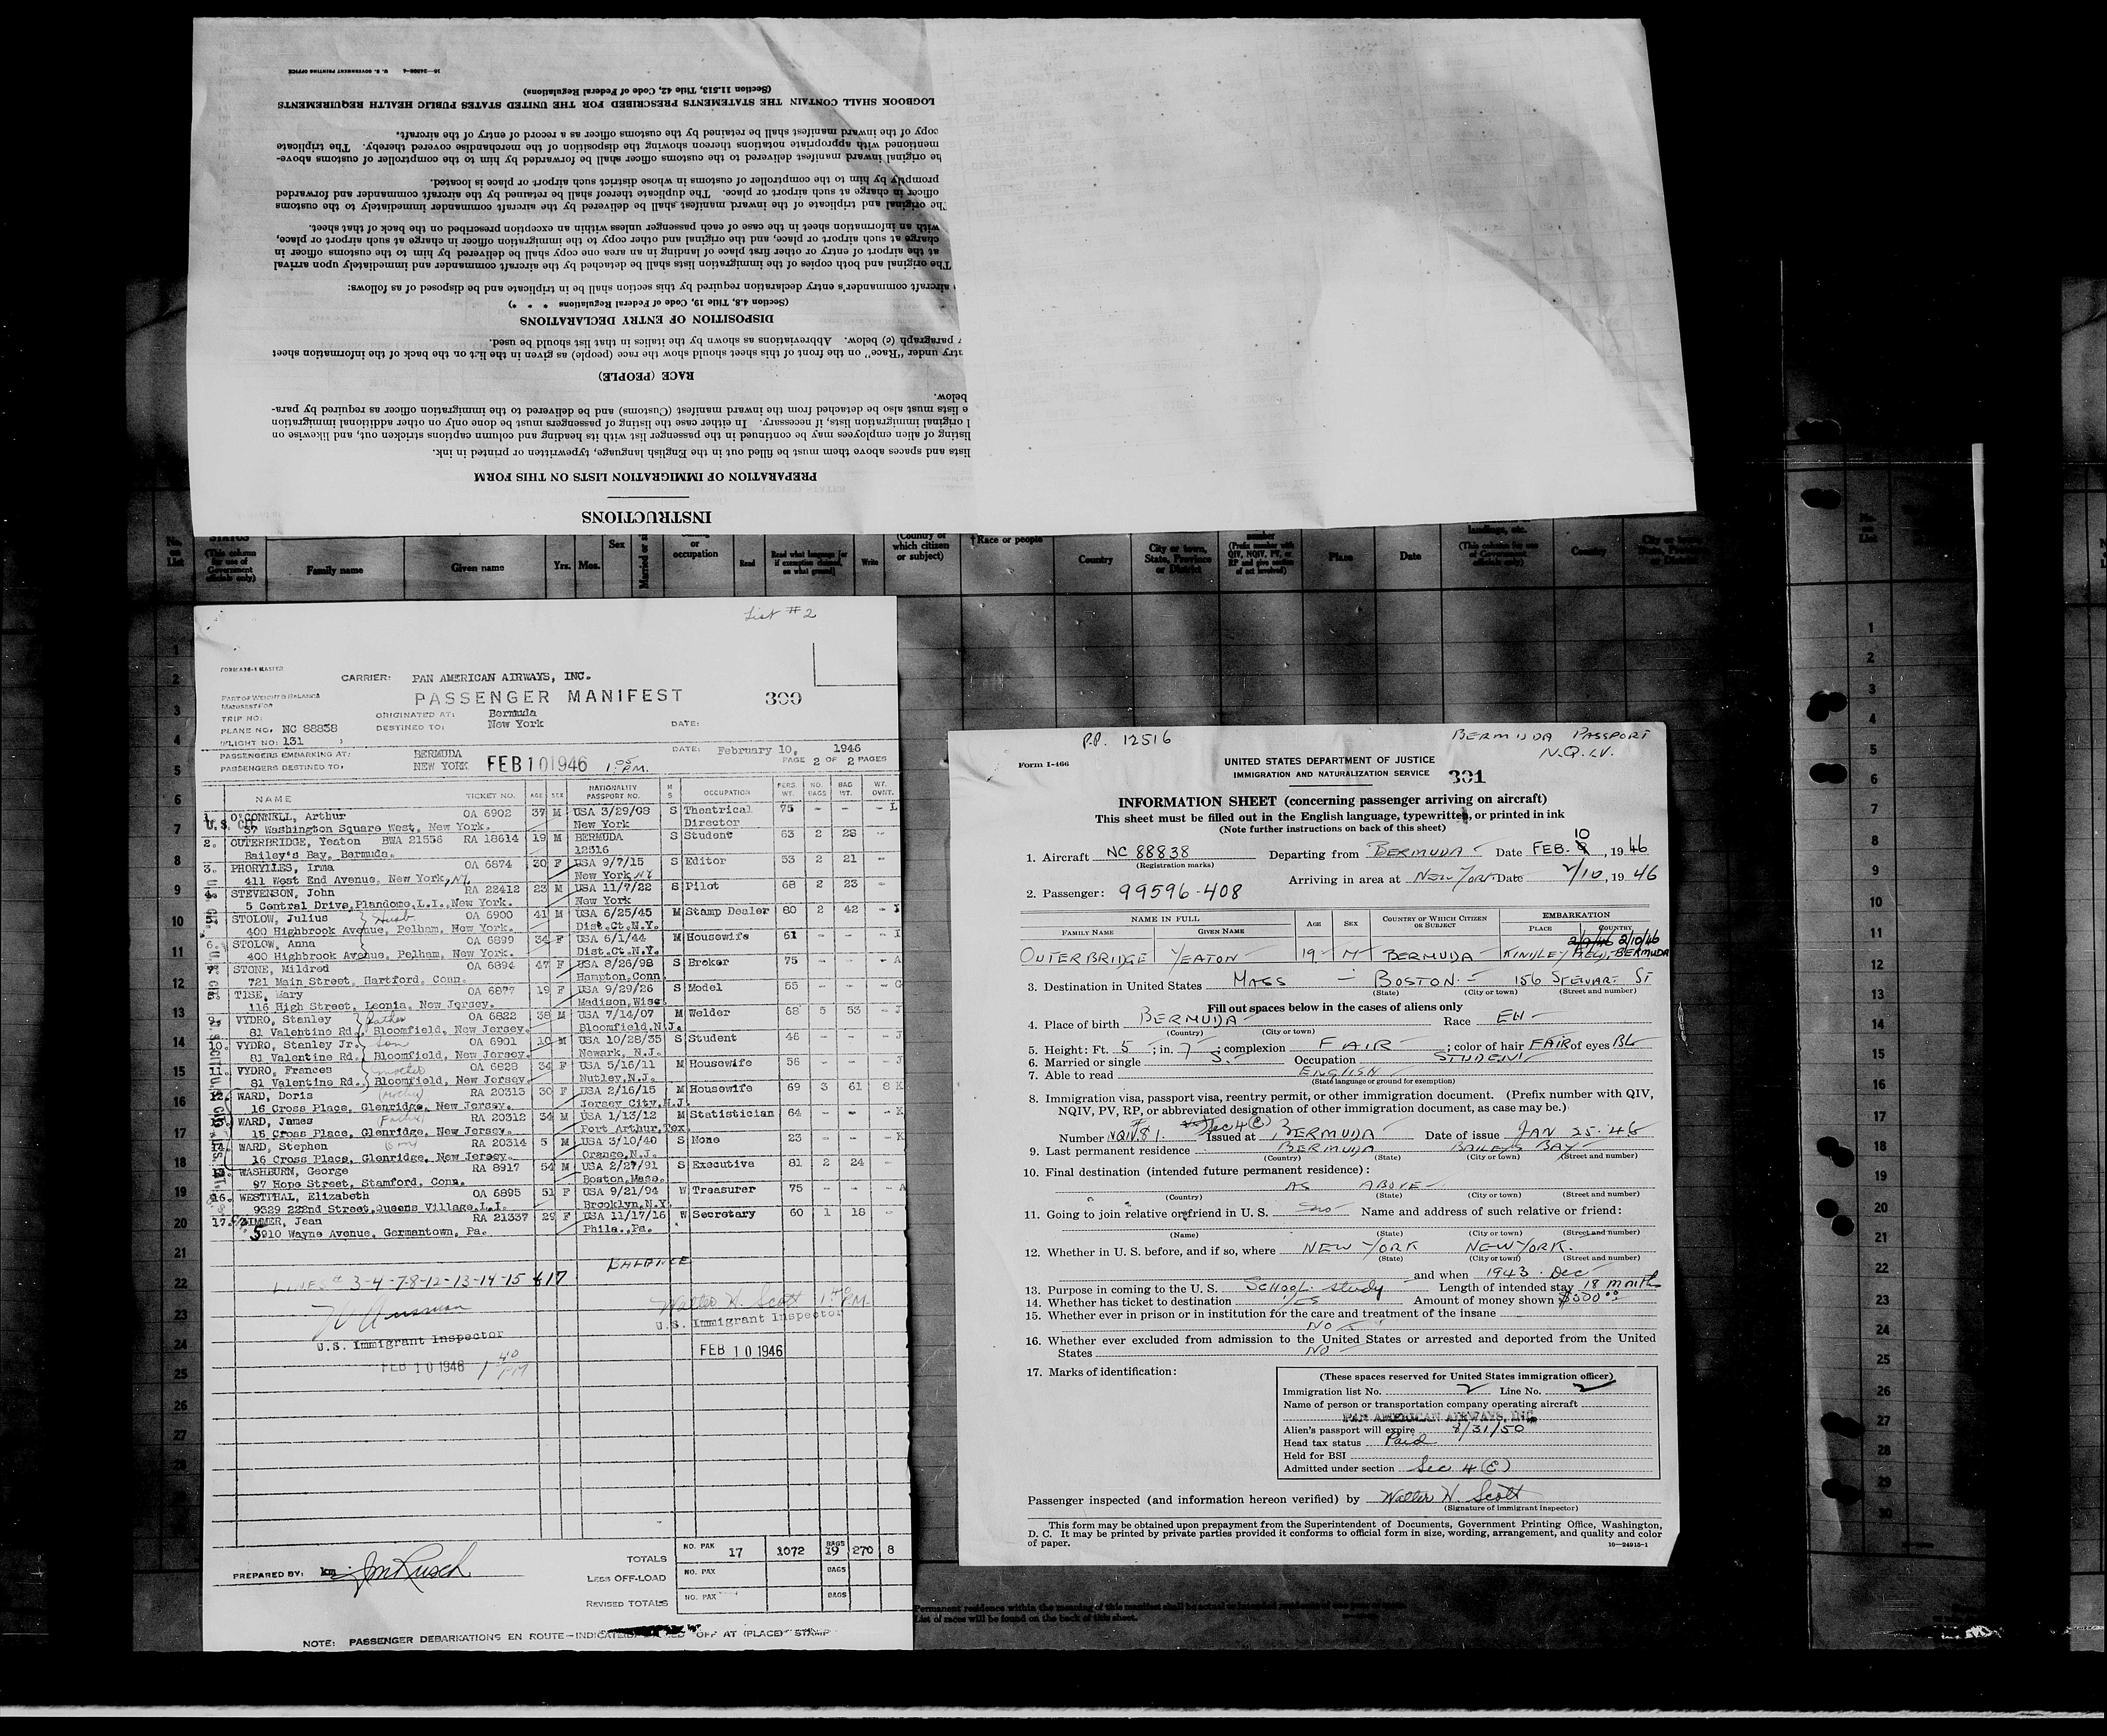 INSTRUCTIONS
PREPARATION OF IMMIGRATION LISTS ON THIS FORM
lists and spaces above them must be filled out in the English language, typewritten or printed in ink.
listing of alien employees may be continued in the passenger list with its heading and column captions stricken out, and likewise on
original immigration lists, if necessary. In either case the listing of passengers must be done only on other additional immigration
e lists must also be detached from the inward manifest (Customs) and be delivered to the immigration officer as required by para-
below.
RACE (PEOPLE)
try under "Race" on the front of this sheet should show the race (people) as given in the list on the back of the information sheet
paragraph (c) below. Abbreviations as shown by the italics in that list should be used.
DISPOSITION OF ENTRY DECLARATIONS
(Section 4.8, Title 19, Code of Federal Regulations * * *)
aircraft commander's entry declaration required by this section shall be in triplicate and be disposed of as follows:
The original and both copies of the immigration lists shall be detached by the aircraft commander and immediately upon arrival
at the airport of entry or other first place of landing in an area one copy shall be delivered by him to the customs officer in
charge at such airport or place, and the original and other copy to the immigration officer in charge at such airport or place,
with an information sheet in the case of each passenger unless within an exception prescribed on the back of that sheet.
The original and triplicate of the inward manifest shall be delivered by the aircraft commander immediately to the customs
officer in charge at such airport or place. The duplicate thereof shall be retained by the aircraft commander and forwarded
promptly by him to the comptroller of customs in whose district such airport or place is located.
he original inward manifest delivered to the customs officer shall be forwarded by him to the comptroller of customs above-
mentioned with appropriate notations thereon showing the disposition of the merchandise covered thereby. The triplicate
copy of the inward manifest shall be retained by the customs officer as a record of entry of the aircraft.
LOGBOOK SHALL CONTAIN THE STATEMENTS PRESCRIBED FOR THE UNITED STATES PUBLIC HEALTH REQUIREMENTS
(Section 11.513, Title 42, Code of Federal Regulations)
U. S. GOVERNMENT PRINTING OFFICE
No. on List
STATUS (This column for use of Government officials only)
Family name Given name Yrs. Mos. Sex
or occupation Read Read what language [or if exemption claimed, on what ground] Write
(Country of which citizen or subject) †Race or people Country City or town, State, Province or District
number (Prefix number with QIV, NQIV, PV, or RP and give section of act involved) Place Date
landings, etc. (This column for use of Government officials only) Country
List #2
CARRIER: PAN AMERICAN AIRWAYS, INC.
PASSENGER MANIFEST 300
PART OF WEIGHT & BALANCE
MANIFEST FOR
TRIP NO:
ORIGINATED AT: Bermuda
PLANE NO. NC 88838 DESTINED TO: New York DATE:
FLIGHT NO: 131
PASSENGERS EMBARKING AT: BERMUDA DATE: February 10, 1946
PASSENGERS DESTINED TO: NEW YORK FEB 10 1946 1 05 P.M. PAGE 2 OF 2 PAGES
NAME TICKET NO. AGE SEX NATIONALITY PASSPORT NO. M S OCCUPATION PERS. WT. NO. BAGS BAG WT. WT. OVNT.
1. O'CONNELL, Arthur OA 6902 37 M USA 3/29/08 S Theatrical 75 - - - L
U.S. CIT. 37 Washington Square West, New York. New York Director
2. OUTERBRIDGE, Yeaton BWA 21536 RA 18614 19 M BERMUDA S Student 63 2 28 -
Bailey's Bay, Bermuda. 12516
3. PHORYLLES, Irma OA 6874 30 F USA 9/7/15 S Editor 53 2 21 -
411 West End Avenue, New York, NY New York, NY
4. STEVENSON, John RA 22412 23 M USA 11/7/22 S Pilot 68 2 23 -
5 Central Drive, Plandome, L.I., New York. New York
STOLOW, Julius Husb OA 6900 41 M USA 6/25/45 M Stamp Dealer 80 2 42 - I
400 Highbrook Avenue, Pelham, New York. Dist.Ct.N.Y.
6. STOLOW, Anna OA 6899 34 F USA 6/1/44 M Housewife 61 - - - I
400 Highbrook Avenue, Pelham, New York. Dist.Ct.N.Y.
7. STONE, Mildred OA 6894 47 F USA 8/26/98 S Broker 75 - - - A
721 Main Street, Hartford, Conn. Hampton, Conn
TISE, Mary OA 6877 19 F USA 9/29/26 S Model 55 - - - G
116 High Street, Leonia, New Jersey. Madison, Wisc.
9. VYDRO, Stanley father OA 6822 38 M USA 7/14/07 M Welder 68 5 53 - J
81 Valentine Rd. Bloomfield, New Jersey. Bloomfield, N.J.
10. VYDRO, Stanley Jr. son OA 6901 10 M USA 10/28/35 S Student 46 - - - J
81 Valentine Rd. Bloomfield, New Jersey. Newark, N.J.
11. VYDRO, Frances mother OA 6828 34 F USA 5/16/11 M Housewife 56 - - - J
81 Valentine Rd. Bloomfield, New Jersey. Nutley, N.J.
12. WARD, Doris (Mother) RA 20313 30 F USA 2/16/15 M Housewife 69 3 61 8 K
16 Cross Place, Glenridge, New Jersey. Jersey City, N.J.
WARD, James (Father) RA 20312 34 M USA 1/13/12 M Statistician 64 - - - K
16 Cross Place, Glenridge, New Jersey. Port Arthur, Tex.
14. WARD, Stephen (Son) RA 20314 5 M USA 3/10/40 S None 23 - - - K
16 Cross Place, Glenridge, New Jersey. Orange, N.J.
WASHBURN, George RA 8917 54 M USA 2/27/91 S Executive 81 2 24 -
97 Hope Street, Stamford, Conn. Boston, Mass.
16. WESTPHAL, Elizabeth OA 6895 51 F USA 9/21/94 W Treasurer 75 - - - A
9329 222nd Street, Queens Village, L.I. Brooklyn, N.Y.
17. ZIMMER, Jean RA 21337 29 F USA 11/17/16 W Secretary 60 1 18 -
5910 Wayne Avenue, Germantown, Pa. Phila., Pa.
BALANCE
LINES # 3-4-7-8-12-13-14-15 & 17
Walter H. Scott 1 40 PM
U.S. Immigrant Inspector
U.S. Immigrant Inspector
FEB 10 1946
FEB 10 1946 1 40 PM
TOTALS NO. PAX 17 1072 BAGS 19 270 8
PREPARED BY: km
LESS OFF-LOAD NO. PAX BAGS
REVISED TOTALS NO. PAX BAGS
NOTE: PASSENGER DEBARKATIONS EN ROUTE—INDICATE OFF AT (PLACE) STAMP
P.P. 12516
BERMUDA PASSPORT
N.Q.I.V.
Form I-466
UNITED STATES DEPARTMENT OF JUSTICE
IMMIGRATION AND NATURALIZATION SERVICE 301
INFORMATION SHEET (concerning passenger arriving on aircraft)
This sheet must be filled out in the English language, typewritten, or printed in ink
(Note further instructions on back of this sheet)
1. Aircraft NC 88838 Departing from BERMUDA Date FEB. 10, 1946
(Registration marks)
Arriving in area at NEW YORK Date 2/10, 1946
2. Passenger: 99596-408
NAME IN FULL AGE SEX COUNTRY OF WHICH CITIZEN OR SUBJECT EMBARKATION
FAMILY NAME GIVEN NAME PLACE COUNTRY
2/9/46 2/10/46
OUTERBRIDGE YEATON 19 M BERMUDA KINDLEY FIELD, BERMUDA
3. Destination in United States MASS BOSTON 156 STEWART ST
(State) (City or town) (Street and number)
Fill out spaces below in the cases of aliens only
4. Place of birth BERMUDA Race EH
(Country) (City or town)
5. Height: Ft. 5; in. 7; complexion FAIR; color of hair FAIR of eyes BL
6. Married or single S. Occupation STUDENT
7. Able to read ENGLISH
(State language or ground for exemption)
8. Immigration visa, passport visa, reentry permit, or other immigration document. (Prefix number with QIV,
NQIV, PV, RP, or abbreviated designation of other immigration document, as case may be.)
Number NQIV 81. Sec 4(E) Issued at BERMUDA Date of issue JAN 25.46
9. Last permanent residence BERMUDA BAILEYS BAY
(Country) (State) (City or town) (Street and number)
10. Final destination (intended future permanent residence):
AS ABOVE
(Country) (State) (City or town) (Street and number)
11. Going to join relative or friend in U. S. Name and address of such relative or friend:
(Name) (State) (City or town) (Street and number)
12. Whether in U. S. before, and if so, where NEW YORK NEW YORK.
(State) (City or town) (Street and number)
and when 1943. Dec
13. Purpose in coming to the U. S. SCHOOL. study Length of intended stay 18 month
14. Whether has ticket to destination YES Amount of money shown $500 00
15. Whether ever in prison or in institution for the care and treatment of the insane
NO
16. Whether ever excluded from admission to the United States or arrested and deported from the United
States NO
17. Marks of identification:
(These spaces reserved for United States immigration officer)
Immigration list No. 2 Line No. 2
Name of person or transportation company operating aircraft
PAN AMERICAN AIRWAYS, INC.
Alien's passport will expire 8/31/50
Head tax status Paid
Held for BSI
Admitted under section Sec 4(E)
Passenger inspected (and information hereon verified) by Walter H. Scott
(Signature of immigrant inspector)
This form may be obtained upon prepayment from the Superintendent of Documents, Government Printing Office, Washington,
D. C. It may be printed by private parties provided it conforms to official form in size, wording, arrangement, and quality and color
of paper.
16—24915-1
Permanent residence within the meaning of this manifest shall be actual or intended residence of one year or more.
List of races will be found on the back of this sheet.